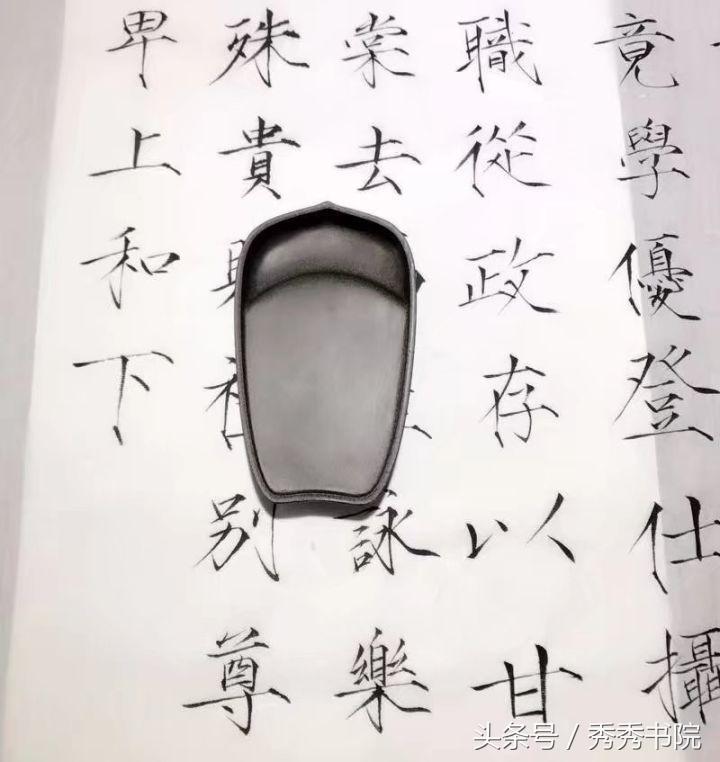 竟學優登仕攝
職從政存以甘
棠去詠樂
殊貴別尊
卑上和下
头条号 / 秀秀书院